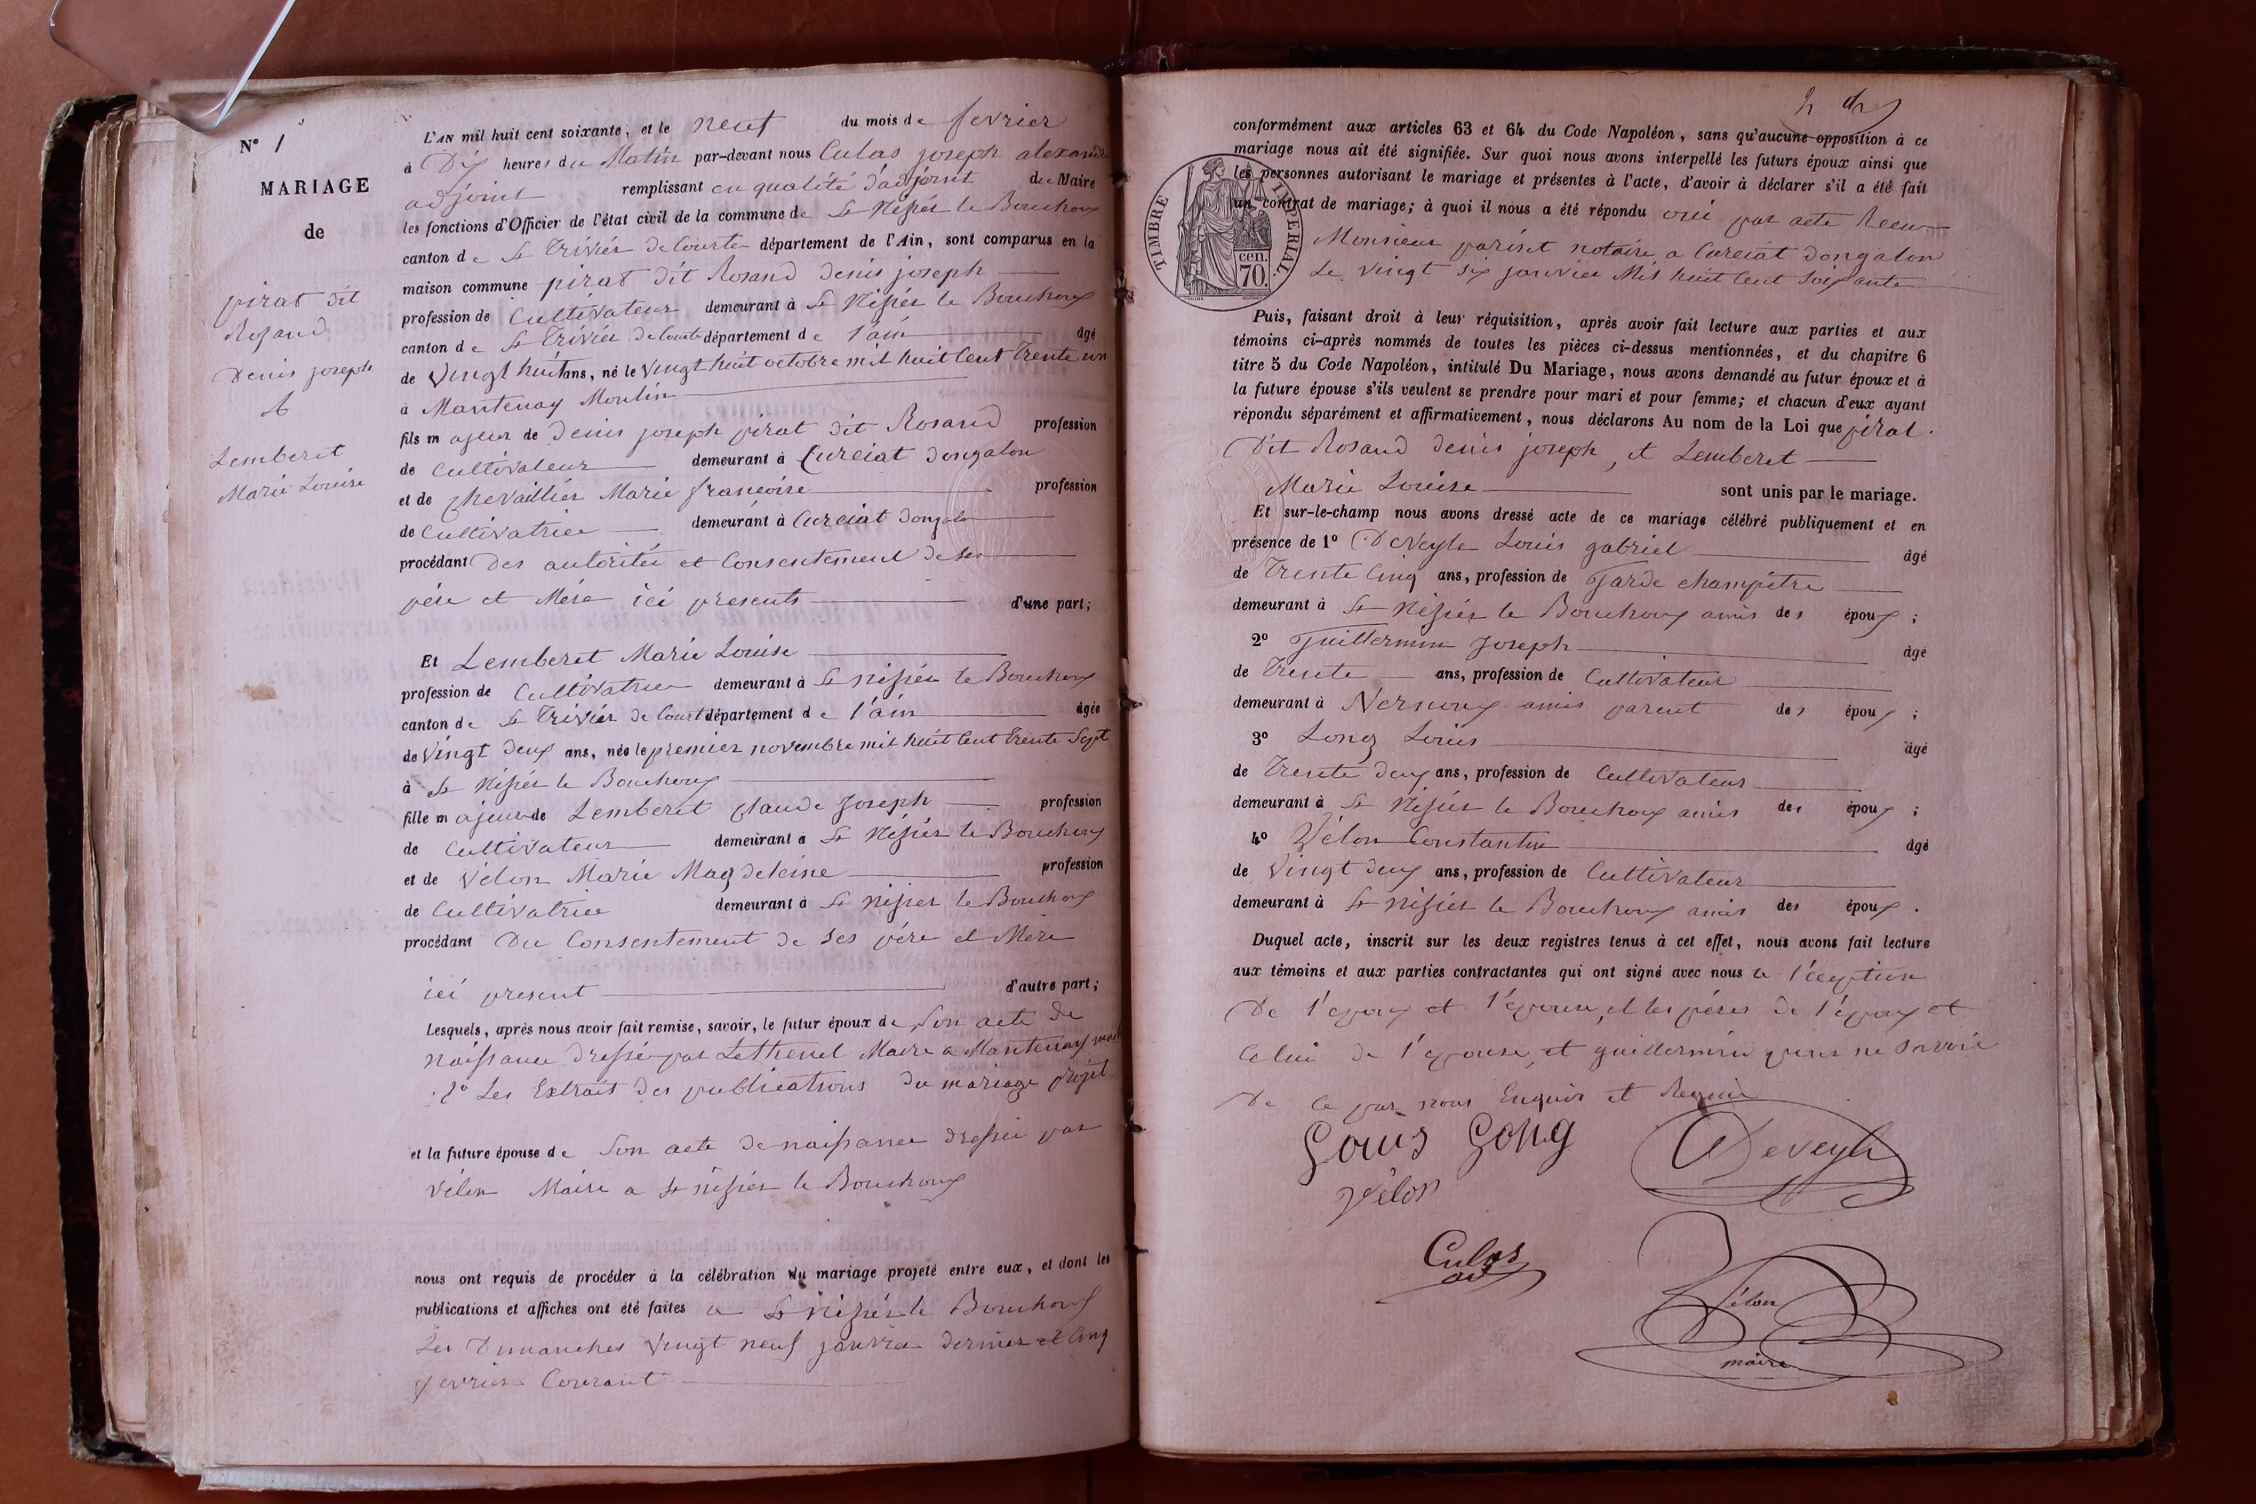 N° 1
MARIAGE
de
pirat dit
Rosand
Denis joseph
&
Lemberet
Marie Louise
L'AN mil huit cent soixante, et le neuf du mois de fevrier
à Dix heures du Matin par-devant nous Culas joseph alexandre
adjoint remplissant en qualité d'adjoint du Maire
les fonctions d'Officier de l'état civil de la commune de St Nisier le Bouchoux
canton de St Trivier de Courtes département de l'Ain, sont comparus en la
maison commune pirat dit Rosand Denis joseph
profession de Cultivateur demeurant à St Nisier le Bouchoux
canton de St Trivier de Courtes département de l'ain âgé
de vingt huit ans, né le vingt huit octobre mil huit Cent Trente un
à Mantenay Montlin
fils majeur de Denis joseph pirat dit Rosand profession
de Cultivateur demeurant à Curciat Dongalon
et de Chevaillier Marie françoise profession
de Cultivatrice demeurant à Curciat Dongalon
procédant Des autorités et Consentement de ses
père et Mère ici presents d'une part;
Et Lemberet Marie Louise
profession de Cultivatrice demeurant à St nisier le Bouchoux
canton de St Trivier de Court département de l'ain âgée
de Vingt deux ans, née le premier novembre mil huit Cent trente Sept
à St Nisier le Bouchoux
fille majeure de Lemberet Claude Joseph profession
de Cultivateur demeurant à St Nisier le Bouchoux
et de Vélon Marie Magdeleine profession
de Cultivatrice demeurant à St nisier le Bouchoux
procédant Du Consentement de ses père et Mère
ici present d'autre part;
Lesquels, après nous avoir fait remise, savoir, le futur époux de Son acte de
naissance dressé par Maire a Mantenay
2° Les Extrait des publications du mariage projet
et la future épouse de Son acte de naissance dressé par
Vélon Maire a St nisier le Bouchoux
nous ont requis de procéder à la célébration du mariage projeté entre eux, et dont les
publications et affiches ont été faites a St nisier le Bouchoux
Les Dimanches vingt neuf janvier dernier et Cinq
fevrier Courant
conformément aux articles 63 et 64 du Code Napoléon, sans qu'aucune opposition à ce
mariage nous ait été signifiée. Sur quoi nous avons interpellé les futurs époux ainsi que
les personnes autorisant le mariage et présentes à l'acte, d'avoir à déclarer s'il a été fait
un contrat de mariage; à quoi il nous a été répondu oui par acte Recu
Monsieur parisot notaire a Curciat Dongalon
Le Vingt six janvier Mil huit Cent Soixante
TIMBRE IMPERIAL.
cen.
70.
Puis, faisant droit à leur réquisition, après avoir fait lecture aux parties et aux
témoins ci-après nommés de toutes les pièces ci-dessus mentionnées, et du chapitre 6
titre 5 du Code Napoléon, intitulé Du Mariage, nous avons demandé au futur époux et à
la future épouse s'ils veulent se prendre pour mari et pour femme; et chacun d'eux ayant
répondu séparément et affirmativement, nous déclarons Au nom de la Loi que pirat
Dit Rosand Denis joseph, et Lemberet
Marie Louise sont unis par le mariage.
Et sur-le-champ nous avons dressé acte de ce mariage célébré publiquement et en
présence de 1° DeVeyle Louis gabriel âgé
de Trente Cinq ans, profession de Garde champêtre
demeurant à St Nisier le Bouchoux amis des époux;
2° Guillermin Joseph âgé
de Trente ans, profession de Cultivateur
demeurant à Vernoux amis parent des époux;
3° Long Louis âgé
de Trente deux ans, profession de Cultivateur
demeurant à St Nisier le Bouchoux amis des époux;
4° Vélon Constantin âgé
de Vingt deux ans, profession de Cultivateur
demeurant à St nisier le Bouchoux amis des époux.
Duquel acte, inscrit sur les deux registres tenus à cet effet, nous avons fait lecture
aux témoins et aux parties contractantes qui ont signé avec nous a l'éxeption
De l'epoux et l'epouse, et les pères de l'epoux et
Celui de l'epouse, et guillermin pour ne savoir
De ce par nous Enquis et Requis
Louis Long Deveyle
Vélon
Culas
adj
Vélon
maire